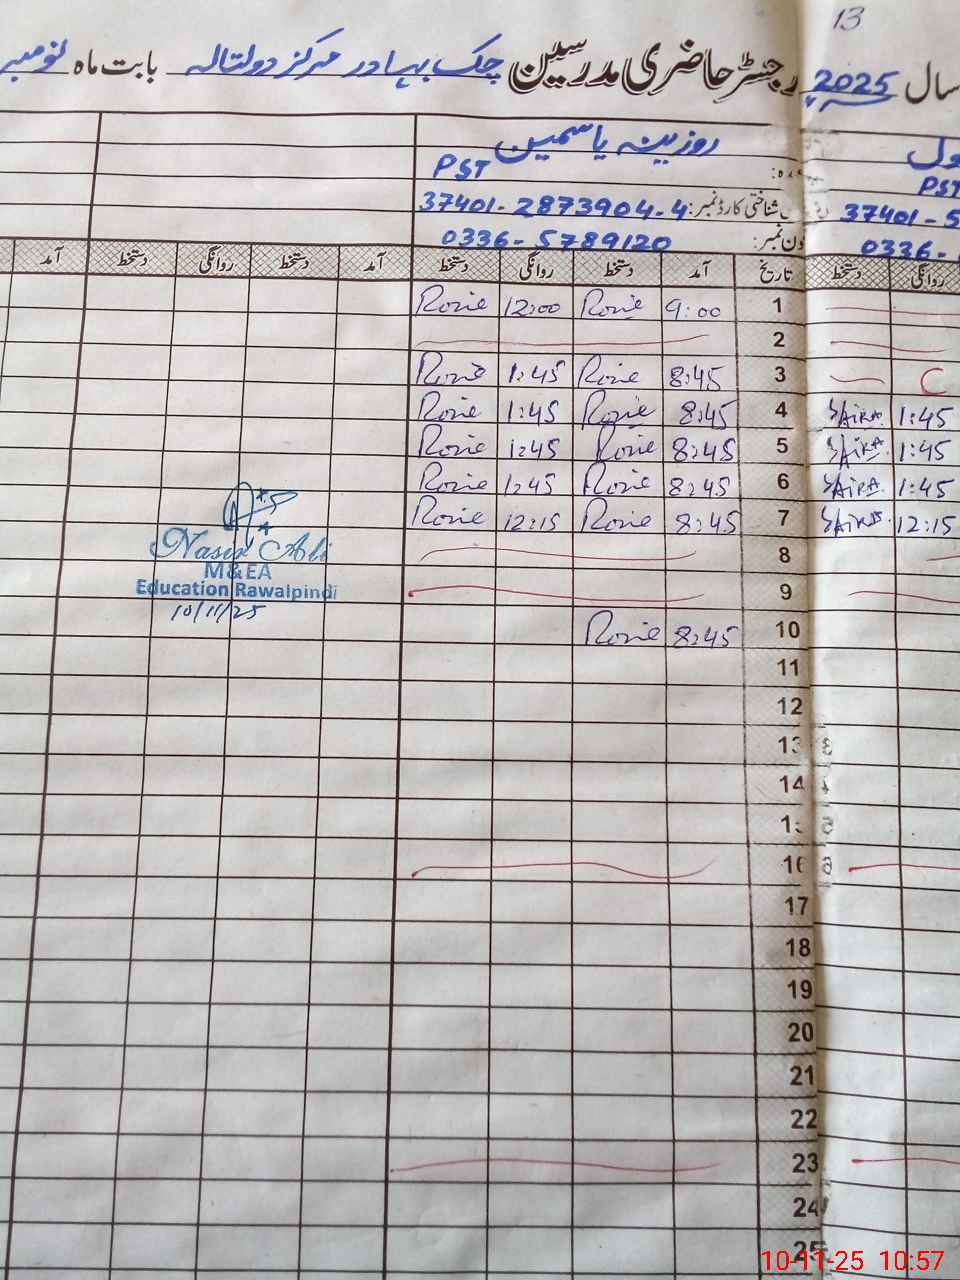 13
سال 2025 رجسٹر حاضری مدرسین چک بہادر مرکز دولتالہ بابت ماہ نومبر
روزینہ یاسمین
PST
PST
شناختی کارڈ نمبر: 37401-2873904-4
37401-5
0336-5789120
0336-
دستخط روانگی تاریخ آمد دستخط روانگی دستخط آمد دستخط روانگی دستخط آمد
1 9:00 Rozie 12:00 Rozie
2
3 8:45 Rozie 1:45 Rozie
C
4 8:45 Rozie 1:45 Rozie
SAIRA 1:45
5 8:45 Rozie 1:45 Rozie
SAIRA 1:45
6 8:45 Rozie 1:45 Rozie
SAIRA 1:45
7 8:45 Rozie 12:15 Rozie
SAIRA 12:15
8
9
10 8:45 Rozie
Nasir Ali
M&EA
Education Rawalpindi
10/11/25
11
12
13
14
15
16
17
18
19
20
21
22
23
24
25
10-11-25 10:57